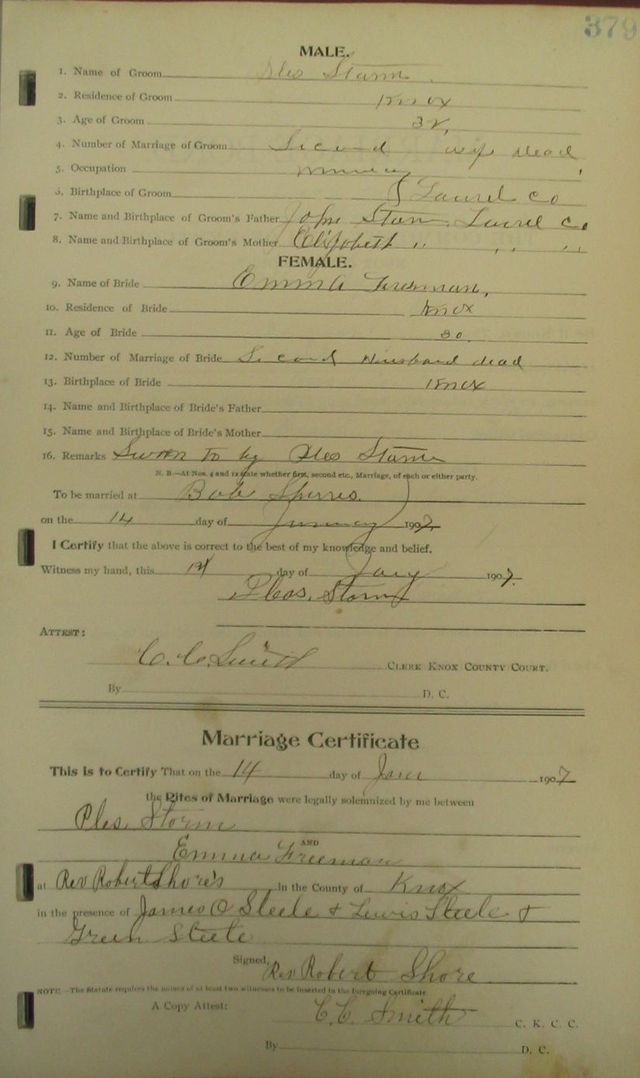 379
MALE.
1. Name of Groom Ples Storm
2. Residence of Groom Knox
3. Age of Groom 32,
4. Number of Marriage of Groom Second wif dead,
5. Occupation
6. Birthplace of Groom Laurel Co
7. Name and Birthplace of Groom's Father John Storm Laurel Co
8. Name and Birthplace of Groom's Mother Elizabeth " " "
FEMALE.
9. Name of Bride Emma Freeman,
10. Residence of Bride Knox
11. Age of Bride 30
12. Number of Marriage of Bride Second Husband dead
13. Birthplace of Bride Knox
14. Name and Birthplace of Bride's Father
15. Name and Birthplace of Bride's Mother
16. Remarks Sworn to by Ples Storm
N. B.—At Nos. 4 and 12 state whether first, second etc., Marriage, of each or either party.
To be married at Bob
on the 14 day of January 1907.
I Certify that the above is correct to the best of my knowledge and belief.
Witness my hand, this day of Jany 1907.
Pleas. Storm
ATTEST:
C. C. Smith CLERK KNOX COUNTY COURT.
By D. C.
Marriage Certificate
This is to Certify That on the 14 day of Jan 1907
the Rites of Marriage were legally solemnized by me between
Ples. Storm
AND
Emma Freeman
at Rev Robert Shore's in the County of Knox
in the presence of James O Steele & Lewis Steele &
Green Steele
Signed, Rev Robert Shore
NOTE.—The Statute requires the names of at least two witnesses to be inserted in the foregoing Certificate.
A Copy Attest: C. C. Smith C. K. C. C.
By D. C.